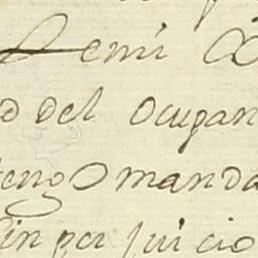 emi
d del ocupan
teng O manda
sin perjuicio